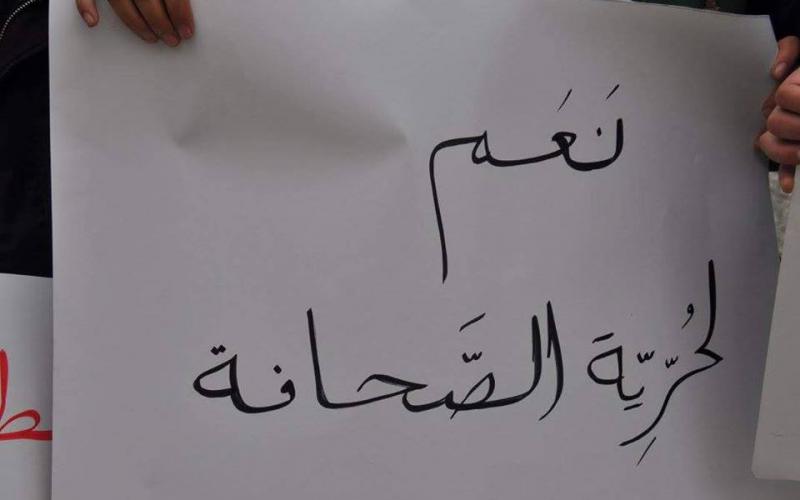 نَعَم
لحُرِّيّة الصَّحافة